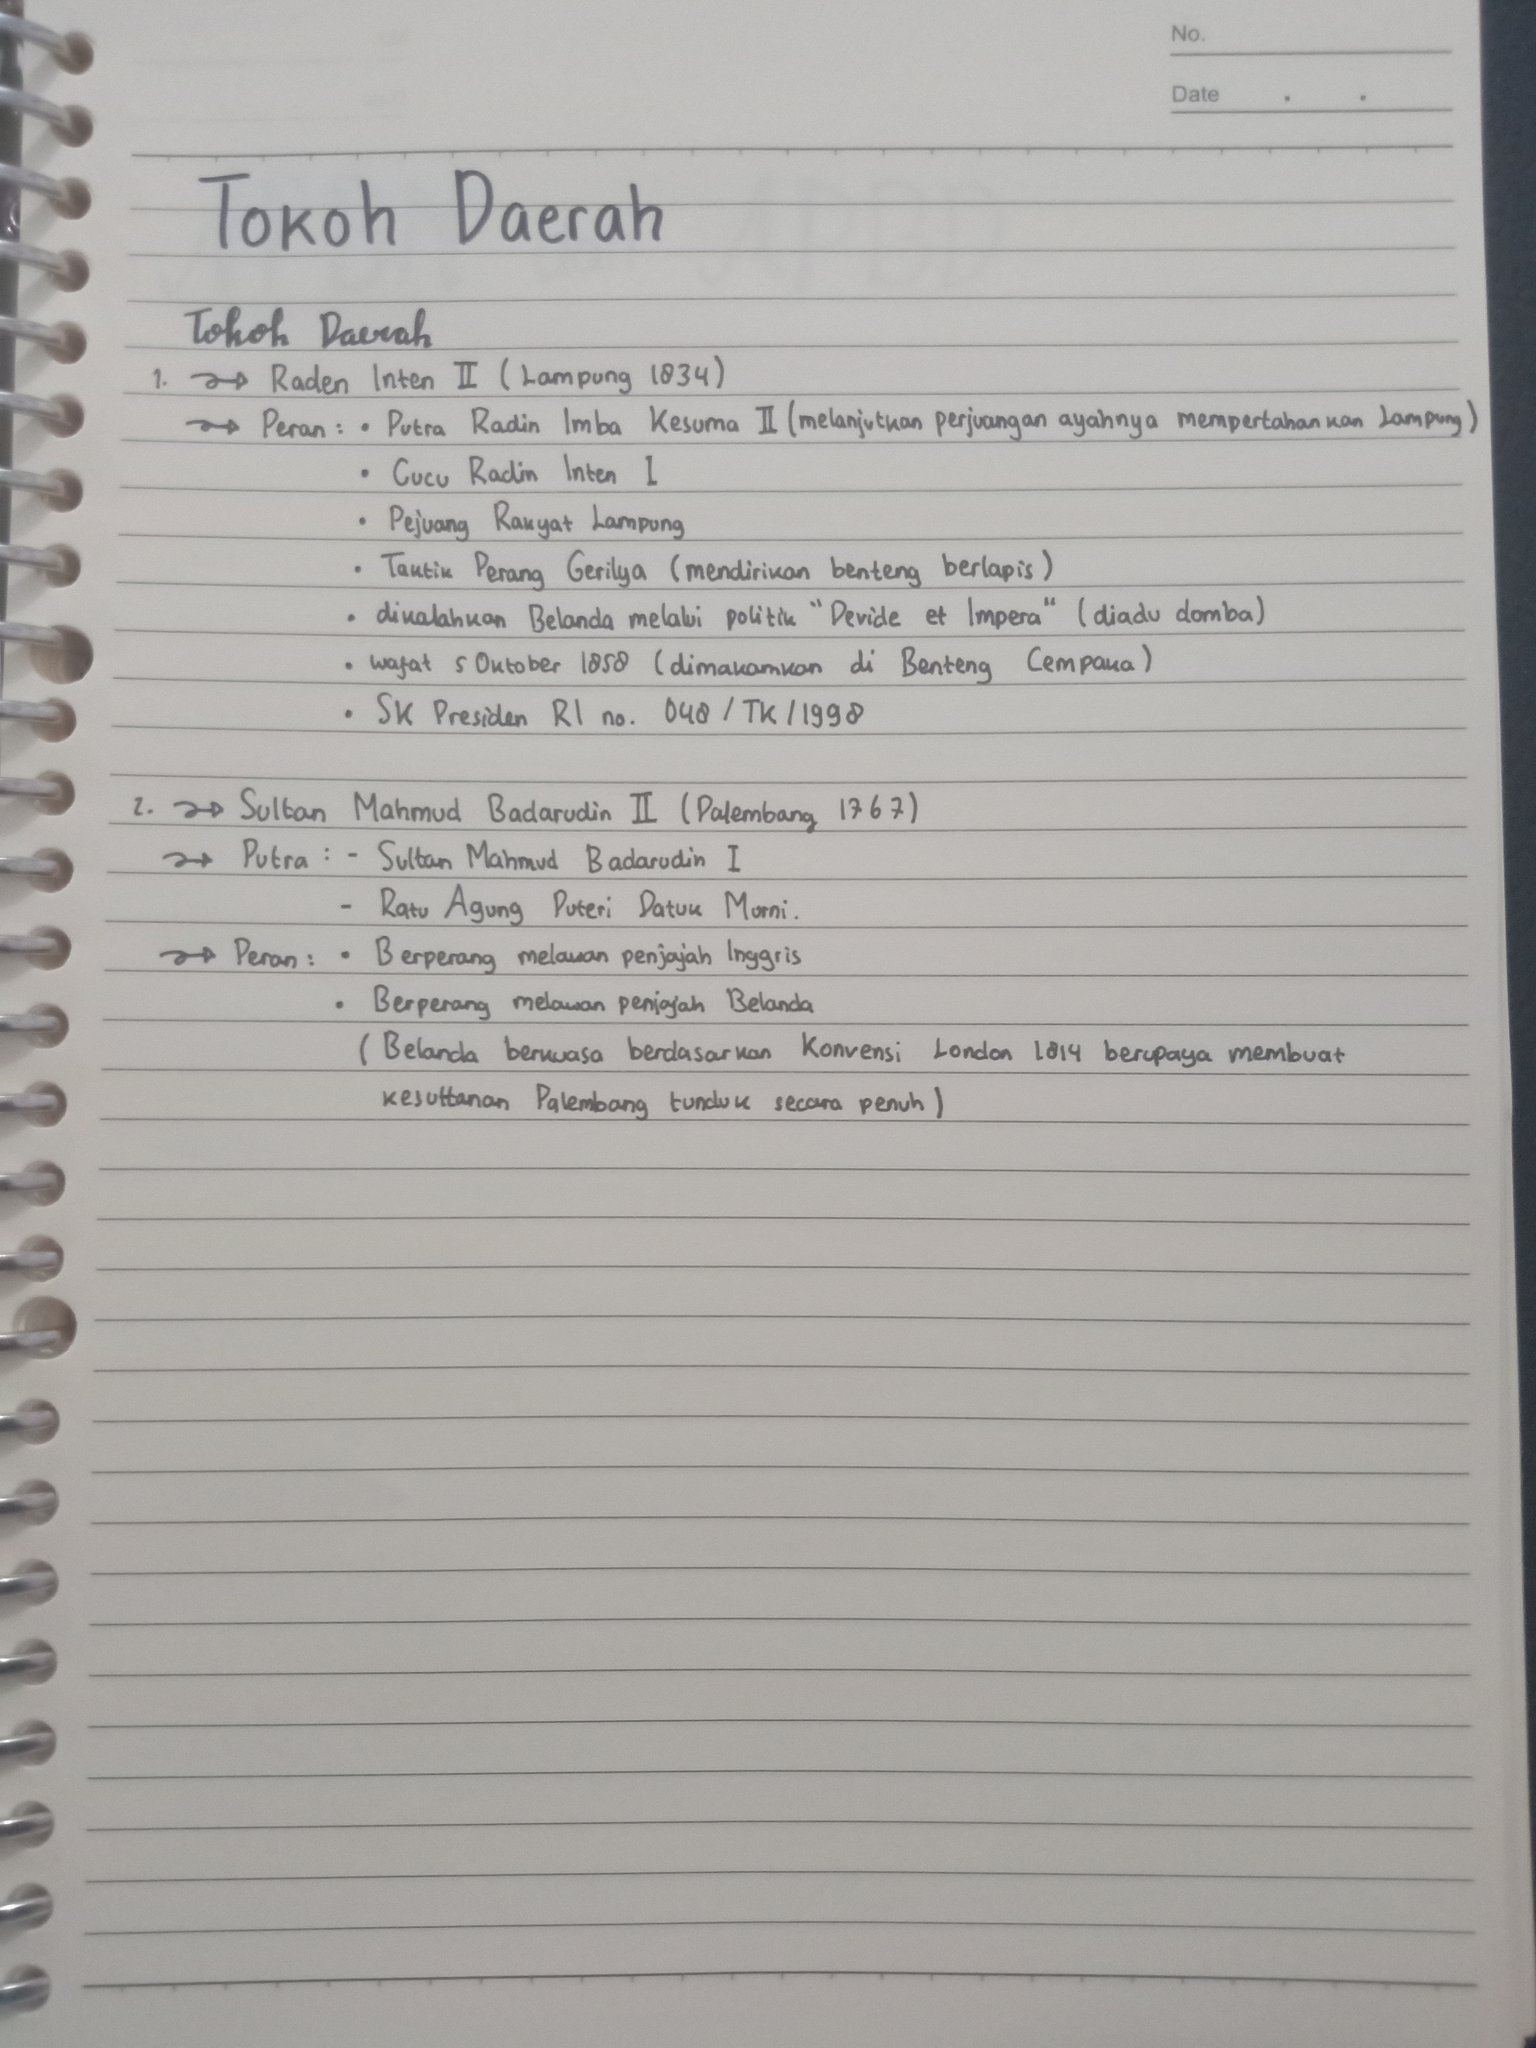 No.
Date . .
Tokoh Daerah
Tokoh Daerah
1. → Raden Inten II (Lampung 1834)
→ Peran : • Putra Radin Imba Kesuma II (melanjutkan perjuangan ayahnya mempertahankan Lampung)
• Cucu Radin Inten I
• Pejuang Rakyat Lampung
• Taktik Perang Gerilya (mendirikan benteng berlapis)
• dikalahkan Belanda melalui politik "Devide et Impera" (diadu domba)
• wafat 5 Oktober 1858 (dimakamkan di Benteng Cempaka)
• SK Presiden RI no. 048 / TK / 1998
2. → Sultan Mahmud Badarudin II (Palembang 1767)
→ Putra : - Sultan Mahmud Badarudin I
- Ratu Agung Puteri Datuk Murni.
→ Peran : • Berperang melawan penjajah Inggris
• Berperang melawan penjajah Belanda
( Belanda berkuasa berdasarkan Konvensi London 1814 berupaya membuat
kesultanan Palembang tunduk secara penuh )